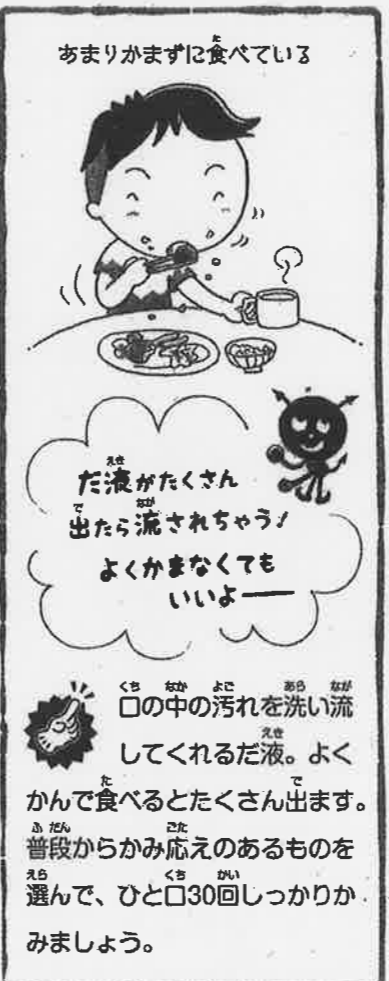 あまりかまずに食べている
だ液がたくさん
出たら流されちゃう！
よくかまなくても
いいよ――
口の中の汚れを洗い流
してくれるだ液。よく
かんで食べるとたくさん出ます。
普段からかみ応えのあるものを
選んで、ひと口30回しっかりか
みましょう。